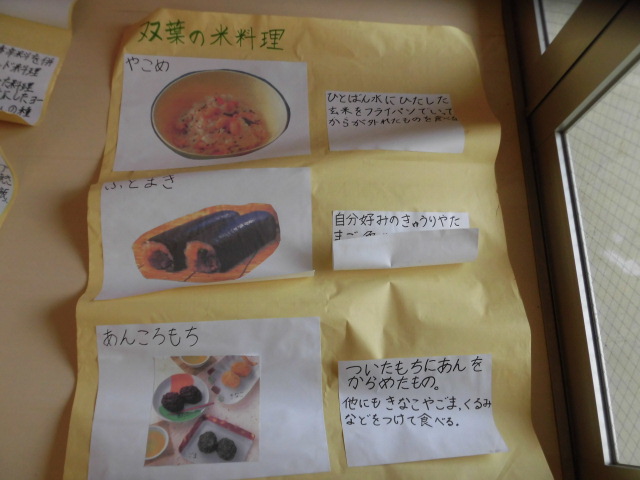 双葉の米料理
やこめ
ひとばん水にひたした
玄米をフライパンでいて
からが外れたものを食べる
ふとまき
自分好みのきゅうりやた
まご
あんころもち
ついたもちにあんを
からめたもの。
他にもきなこやごま,くるみ
などをつけて食べる.